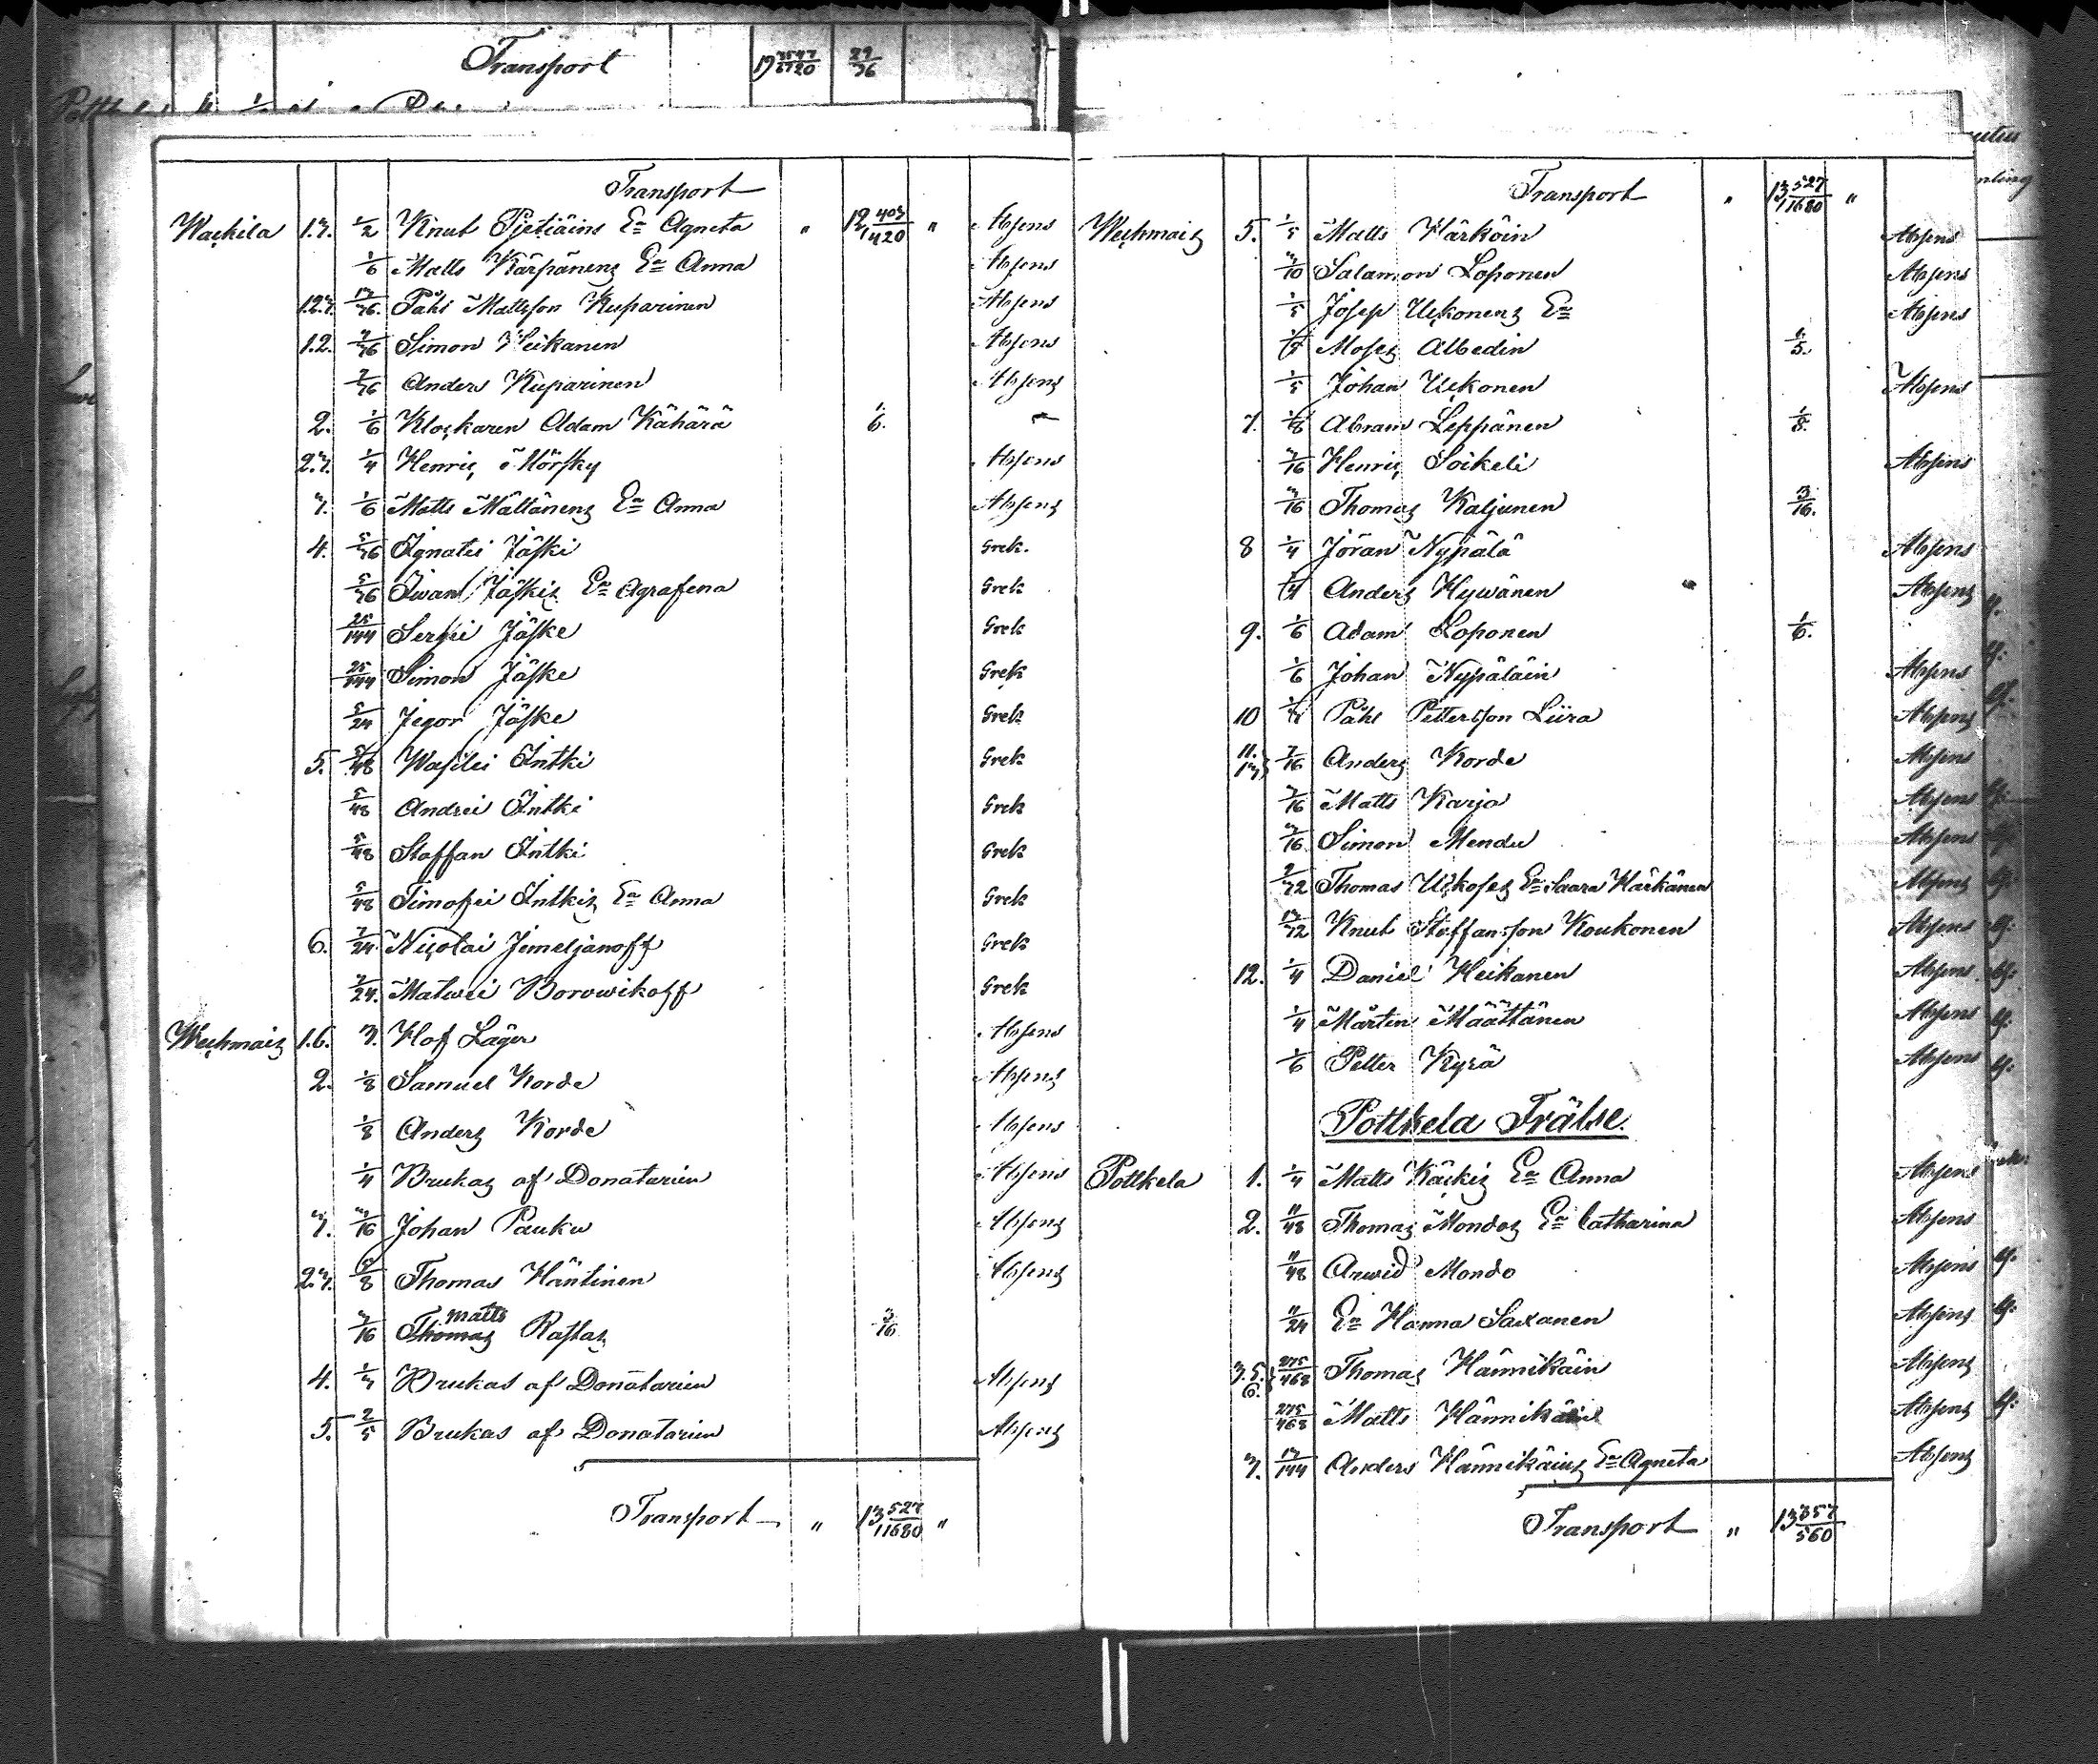 Transport 19 3547/6720 29/36
Transport
Wackila 1.3. 1/2 Knut Pjetiäins Ea Agneta " 12 403/1420 " Absens
1/6 Matts Kärpänens Ea Anna Absens
1.2.3. 13/36. Påhl Mattsson Kuparinen Absens
1.2. 7/36 Simon Heikanen Absens
7/36 Anders Kuparinen Absens
2. 1/6 Klockaren Adam Kähärä 1/6.
2.3. 1/4 Henric Mörsky Absens
3. 1/6 Matts Mältänens Ea Anna Absens
4. 5/36 Ignatei Jäski Grek.
5/36 Iwan Jäskis Ea Agrafena Grek
25/144 Sergei Jäske Grek
25/144 Simon Jäske Grek
5/24 Jegor Jäske Grek
5. 5/48 Wasilei Intki Grek
5/48 Andrei Intki Grek
5/48 Staffan Intki Grek
5/48 Timofei Intkis Ea Anna Grek
6. 7/24 Nicolai Jemeljanoff Grek
7/24. Matwei Borowikoff Grek
Wechmais 1.6. 3. Hof Läger Absens
2. 1/8 Samuel Korde Absens
1/8 Anders Korde Absens
1/4 Brukas af Donatarien Absens
3. 3/16 Johan Pauku Absens
2.3. Thomas Häntinen Absens
Matts
3/16 Thomas Rastas 3/16
4. 1/3 Brukas af Donatarien Absens
5. 2/5 Brukas af Donatarien Absens
Transport " 13 527/11680 "
Transport " 13 527/11680 "
Wechmais 5. 1/5 Matts Härköin Absens
3/10 Salamon Loponen Absens
1/5 Josep Uckonens Ea Absens
1/5 Moses Albedin 1/5.
1/5 Johan Uckonen Absens
7. 1/8 Abram Leppänen 1/8.
3/16 Henric Soikeli Absens
3/16 Thomas Kaljunen 3/16.
8 1/4 Jöran Nypälä Absens
1/4 Anders Hywänen Absens
9. 1/6 Adam Loponen 1/6.
1/6 Johan Nypäläin Absens
10 Påhl Pettersson Liira Absens
11. 13} 7/16 Anders Korde Absens
7/16 Matts Karjo Absens
3/16 Simon Mendu Absens
Thomas Uckoses Ea Saara Härkänen Absens
Knut Staffansson Koukonen Absens
12. 1/4 Daniel Heikanen Absens
1/4 Mårten Määttänen Absens
1/6 Petter Kyrä Absens
Pottkela Frälse.
Pottkela 1. 1/4 Matts Käckis Ea Anna Absens
2. 11/48 Thomas Mondos Ea Catharina Absens
11/48 Arwid Mondo Absens
11/24 Ea Hanna Saxanen Absens
3.5. 6.} 275/468 Thomas Hännikäin Absens
275/468 Matts Hännikäin Absens
7. 13/144 Anders Hännikäins Ea Agneta Absens
Transport " 13 357/560